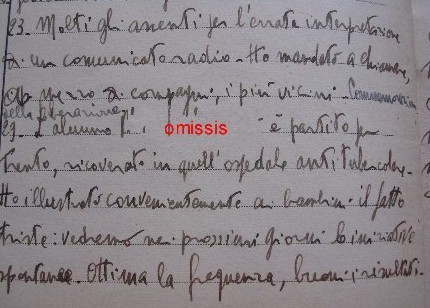 23. Molti gli assenti per l'errata interpretazione
di un comunicato radio. Ho mandato a chiamare,
per mezzo di compagni, i più vicini. Commemorazione
della liberazione
29. L'alunno omissis è partito per
Trento, ricoverato in quell'ospedale antitubercolare.
Ho illustrato convenientemente ai bambini il fatto
triste: vedremo nei prossimi giorni le iniziative
spontanee. Ottima la frequenza, buoni i risultati.